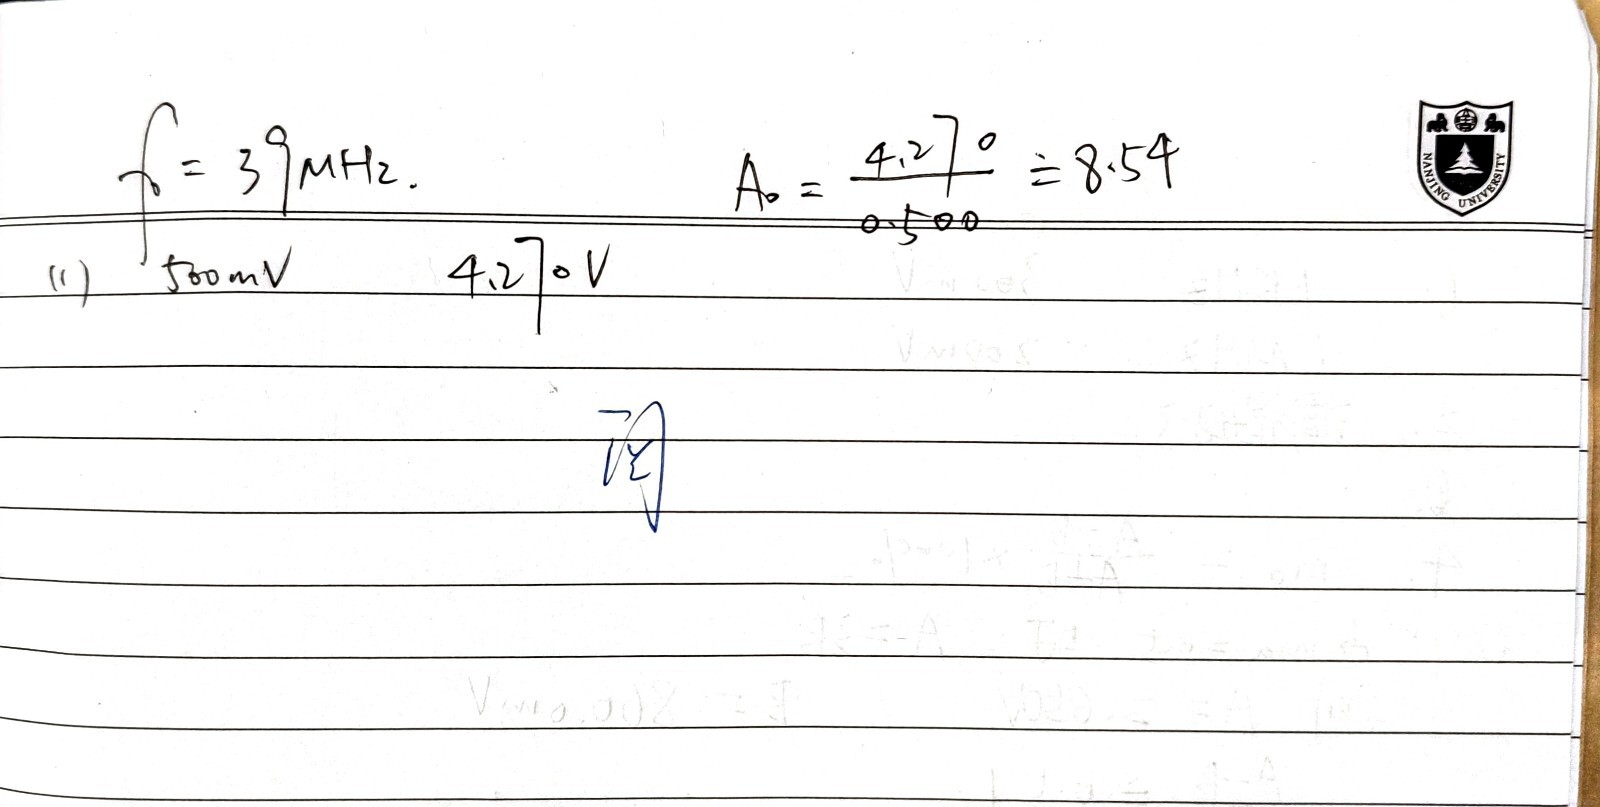 f₀ = 39MHz. A₀ = 4.270/0.500 ≐ 8.54
NANJING UNIVERSITY
(1) 500mV 4.270V
阅